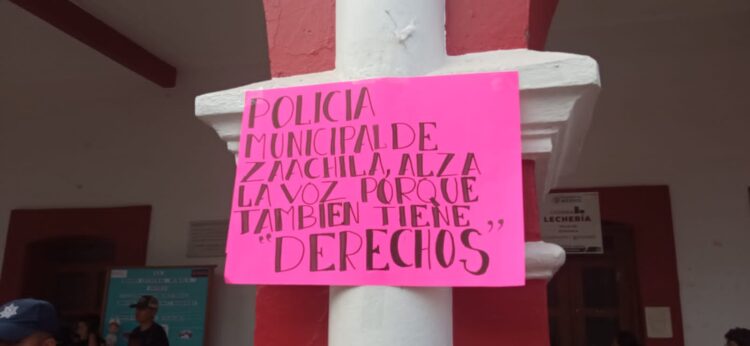 POLICIA
MUNICIPAL DE
ZAACHILA, ALZA
LA VOZ PORQUE
TAMBIEN TIENE
"DERECHOS"
LECHERÍA